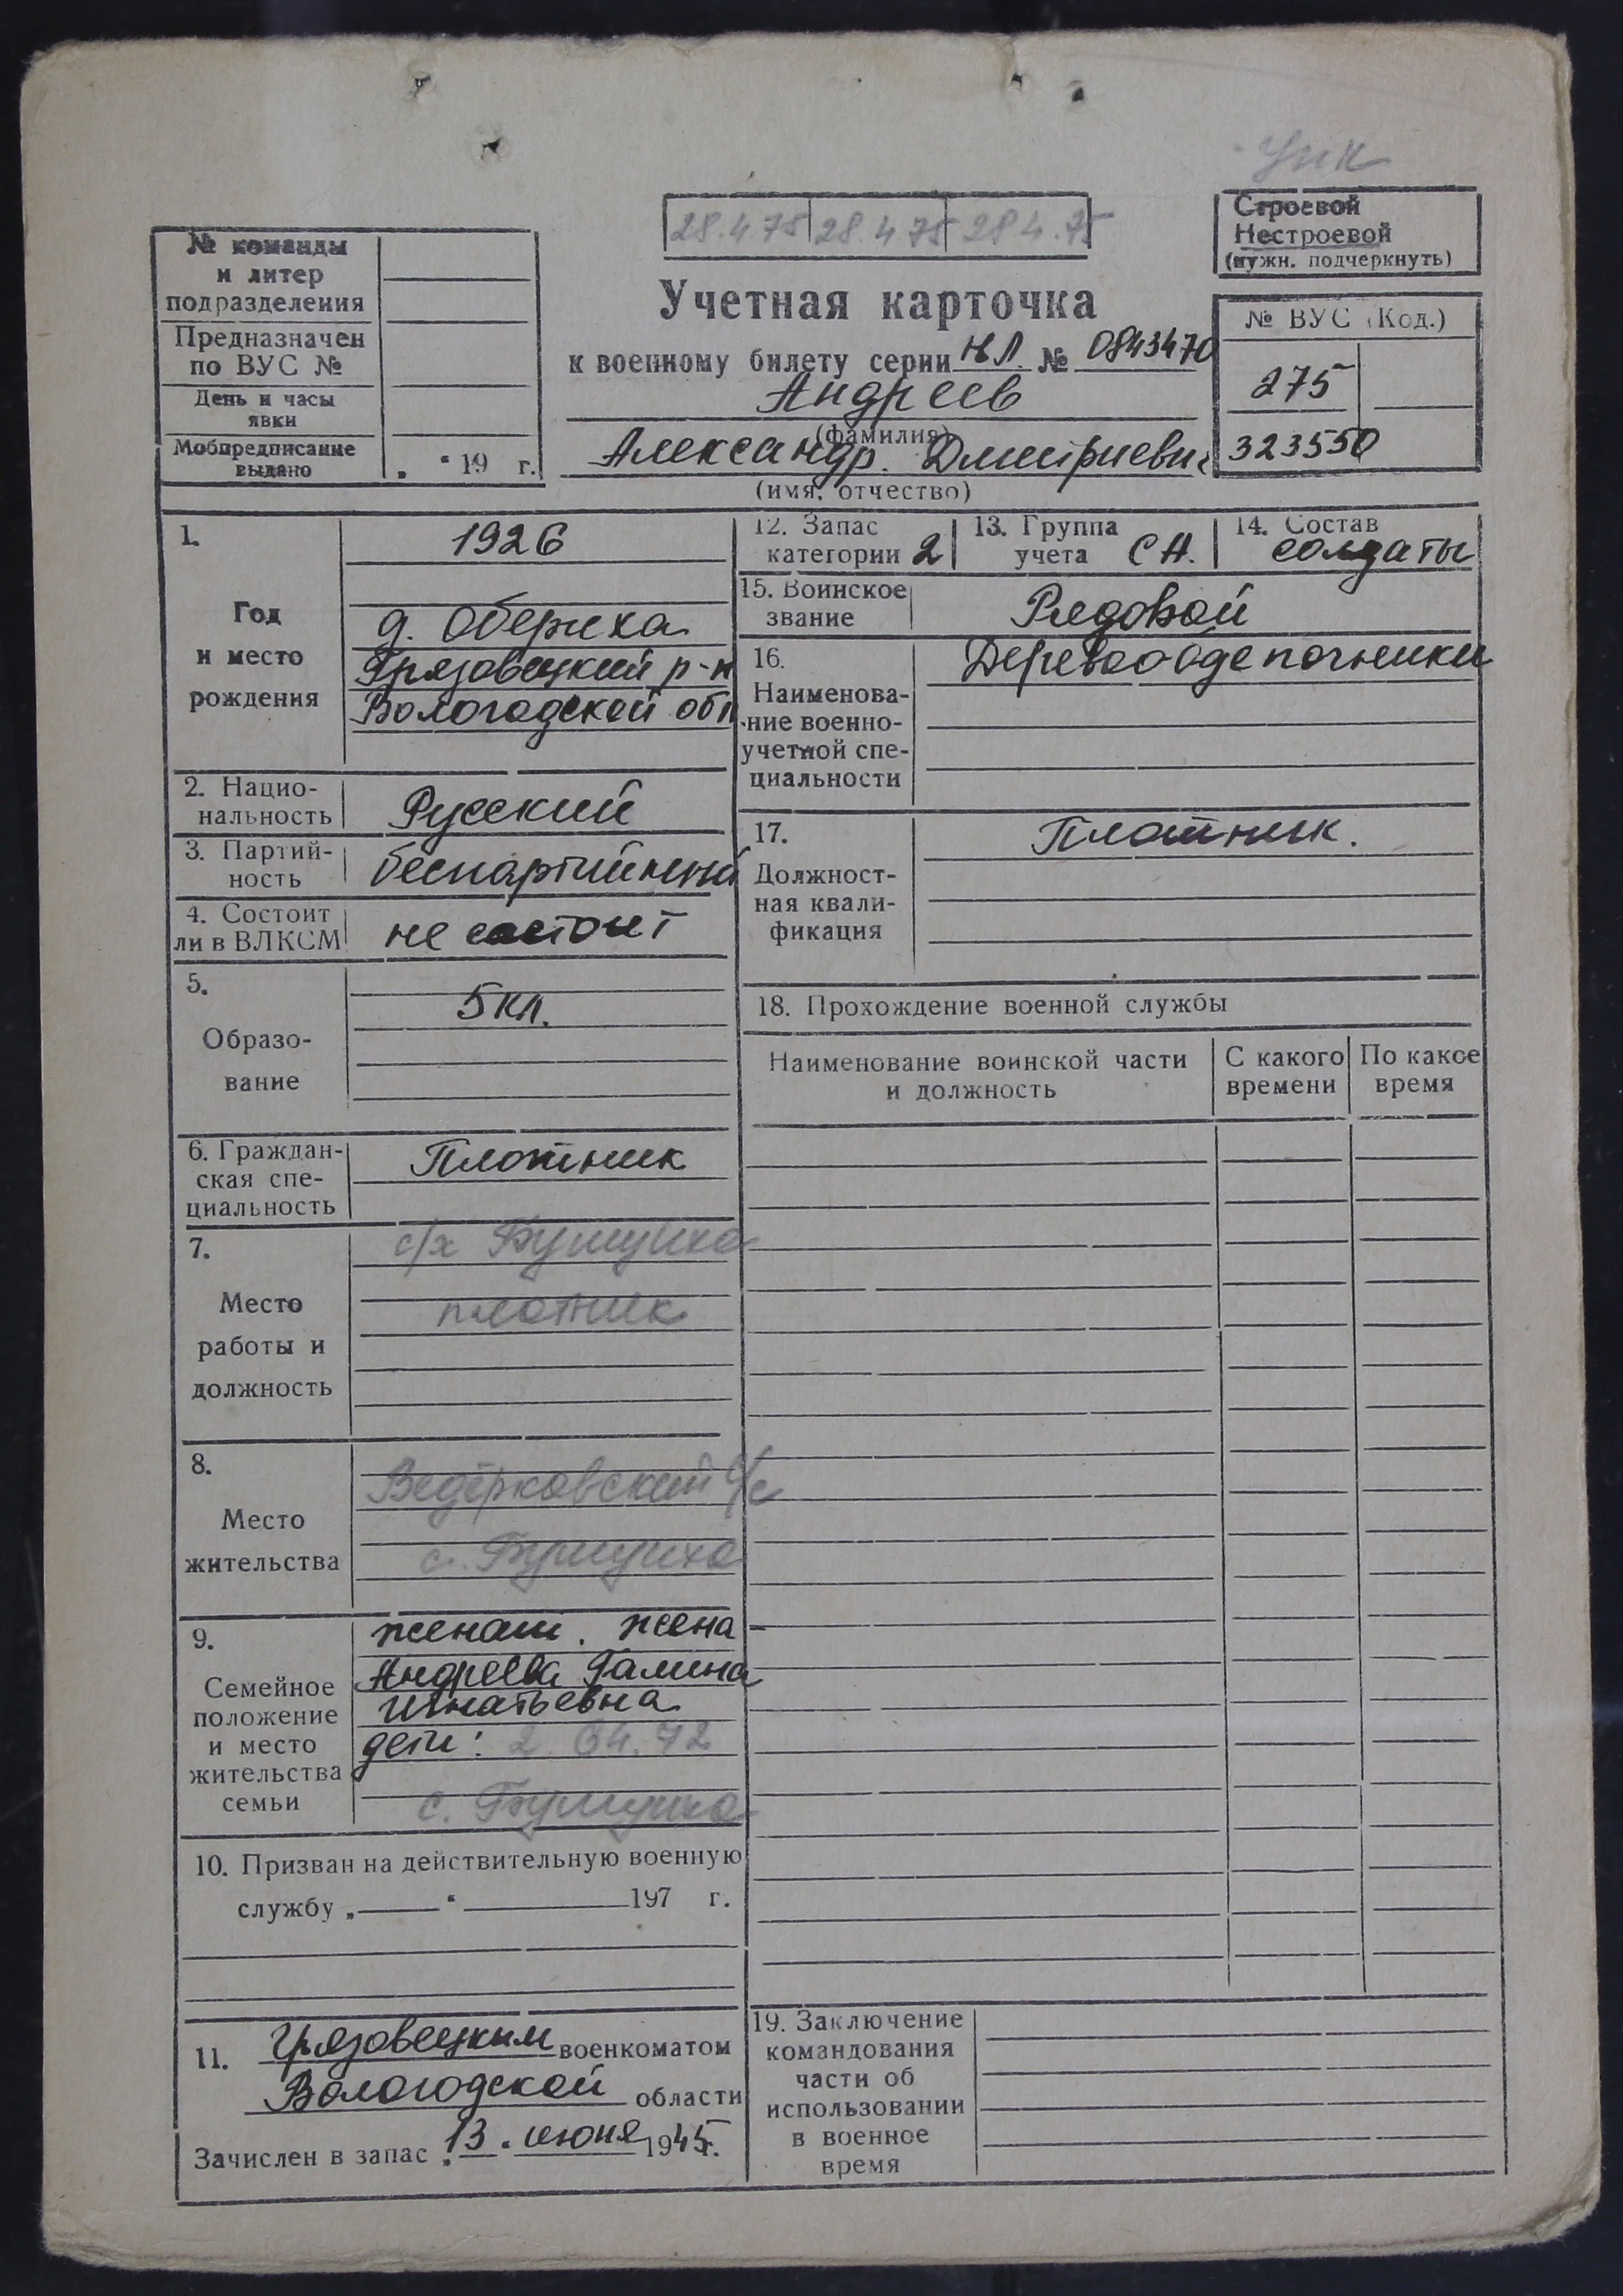 28.4.75 28.4.75 28.4.75
Строевой
Нестроевой
(нужн. подчеркнуть)
№ команды
и литер
подразделения
Предназначен
по ВУС №
День и часы
явки
Мобпредписание
выдано
„ “ 19 г.
Учетная карточка
к военному билету серии НЛ № 0843470
Андреев
(фамилия)
Александр. Дмитриевич
(имя, отчество)
№ ВУС (Код.)
275
323550
1.
Год
и место
рождения
1926
д. Обериха
Грязовецкий р-н
Вологодской обл
2. Нацио-
нальность
Русский
3. Партий-
ность
беспартийный
4. Состоит
ли в ВЛКСМ
не состоит
5.
Образо-
вание
5 кл.
6. Граждан-
ская спе-
циальность
Плотник
7.
Место
работы и
должность
с/х Бушуиха
плотник
8.
Место
жительства
Ведерковский с/с
с. Бушуиха
9.
Семейное
положение
и место
жительства
семьи
женат. жена -
Андреева Галина
Игнатьевна
дети: 2 64. 72
с. Бушуиха
10. Призван на действительную военную
службу „ “ 197 г.
11. Грязовецким военкоматом
Вологодской области
Зачислен в запас „13“ июня 1945г.
12. Запас
категории 2
13. Группа
учета СА.
14. Состав
солдаты
15. Воинское
звание
Рядовой
16.
Наименова-
ние военно-
учетной спе-
циальности
Деревообделочники
17.
Должност-
ная квали-
фикация
Плотник.
18. Прохождение военной службы
Наименование воинской части
и должность
С какого
времени
По какое
время
19. Заключение
командования
части об
использовании
в военное
время